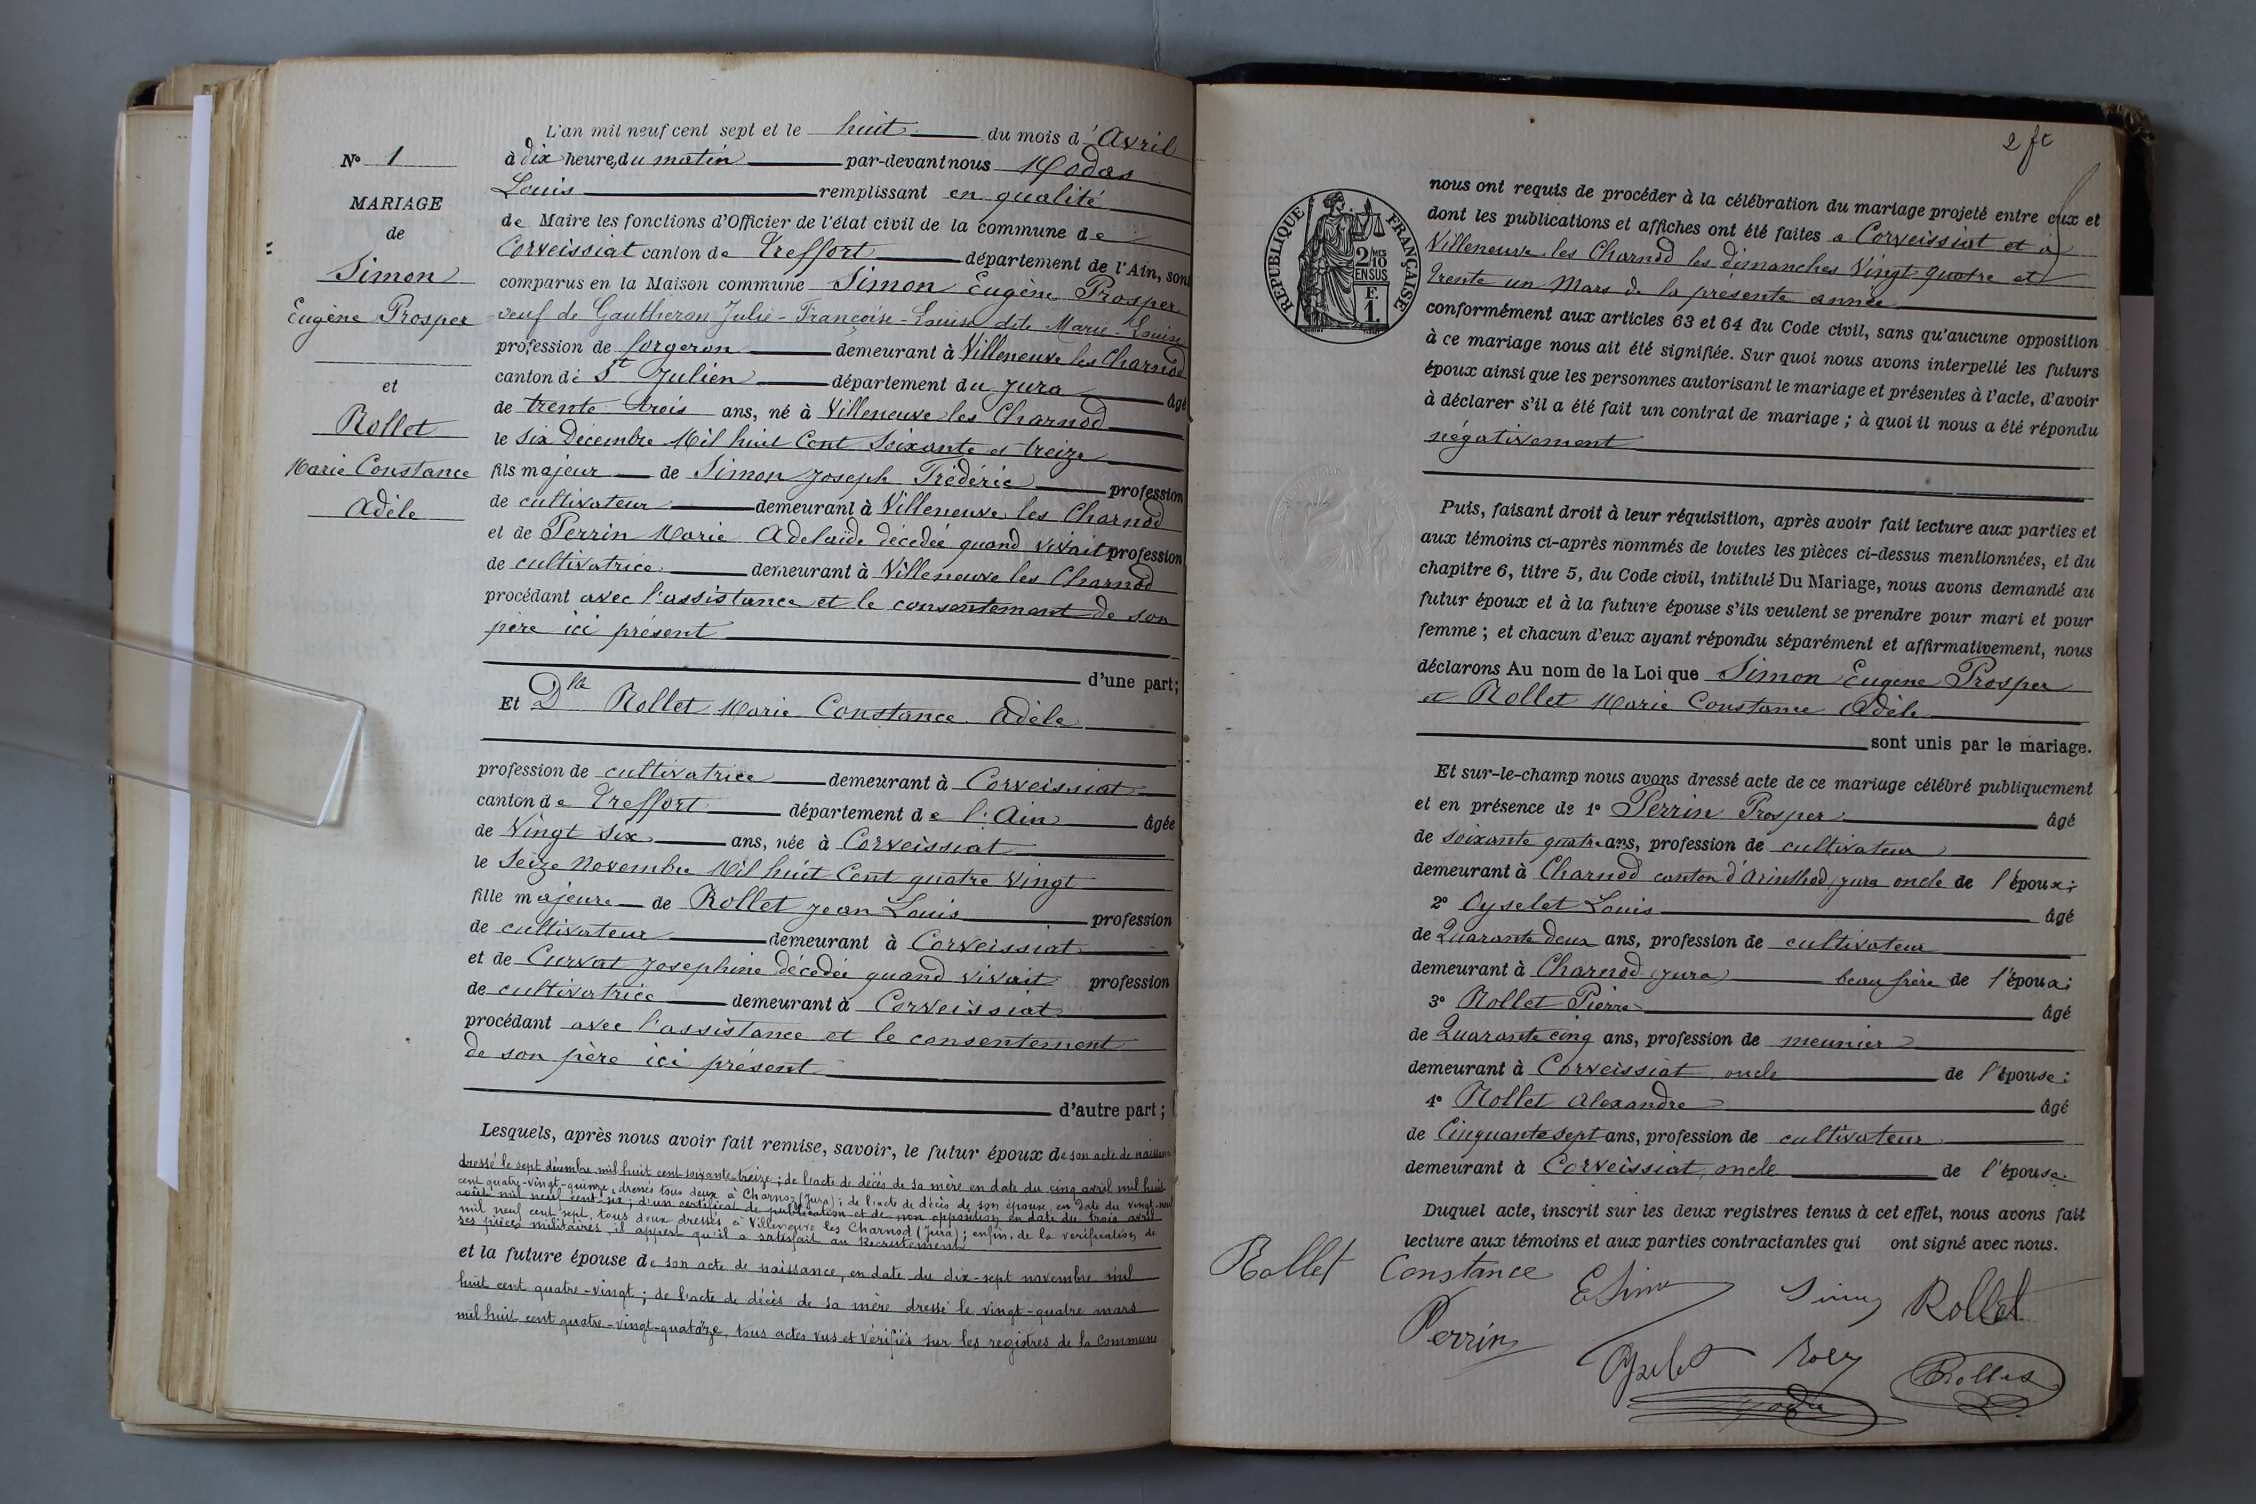 N° 1
MARIAGE
de
Simon
Eugène Prosper
et
Rollet
Marie Constance
Adèle
L'an mil neuf cent sept et le huit du mois d'Avril
à dix heures du matin par-devant nous Modas
Louis remplissant en qualité
de Maire les fonctions d'Officier de l'état civil de la commune de
Corveissiat canton de Treffort département de l'Ain, sont
comparus en la Maison commune Simon Eugène Prosper
veuf de Gautheron Julie-Françoise-Louise dite Marie-Louise
profession de forgeron demeurant à Villeneuve les Charnod
canton de St Julien département du Jura âgé
de trente trois ans, né à Villeneuve les Charnod
le six Décembre Mil huit Cent Soixante et treize
fils majeur de Simon Joseph Frédéric profession
de cultivateur demeurant à Villeneuve les Charnod
et de Perrin Marie Adelaïde décedée quand vivait profession
de cultivatrice demeurant à Villeneuve les Charnod
procédant avec l'assistance et le consentement de son
père ici présent
d'une part;
Et Dlle Rollet Marie Constance Adèle
profession de cultivatrice demeurant à Corveissiat
canton de Treffort département de l'Ain âgée
de Vingt six ans, née à Corveissiat
le Seize Novembre Mil huit Cent quatre Vingt
fille majeure de Rollet Jean Louis profession
de cultivateur demeurant à Corveissiat
et de Curvat Josephine décedée quand vivait profession
de cultivatrice demeurant à Corveissiat
procédant avec l'assistance et le consentement
de son père ici présent
d'autre part;
Lesquels, après nous avoir fait remise, savoir, le futur époux de son acte de naissance
dressé le sept décembre mil huit cent soixante-treize; de l'acte de décès de sa mère en date du cinq avril mil huit
cent quatre-vingt-quinze, dressés tous deux à Charnoz (Jura); de l'acte de décès de son épouse, en date du vingt-neuf
août mil neuf cent six; d'un certificat de publication et de non opposition en date du trois avril
mil neuf cent sept, tous deux dressés à Villeneuve les Charnod (Jura); enfin, de la vérification de
ses pièces militaires, il appert qu'il a satisfait au Recrutement
et la future épouse de son acte de naissance, en date du dix-sept novembre mil
huit cent quatre-vingt; de l'acte de décès de sa mère dressé le vingt-quatre mars
mil huit cent quatre-vingt-quatorze, tous actes vus et vérifiés sur les registres de la commune
2 ft
RÉPUBLIQUE FRANÇAISE
2 MES
10
EN SUS
F.
1.
nous ont requis de procéder à la célébration du mariage projeté entre eux et
dont les publications et affiches ont été faites à Corveissiat et à
Villeneuve les Charnod les dimanches Vingt quatre et
trente un Mars de la présente année
conformément aux articles 63 et 64 du Code civil, sans qu'aucune opposition
à ce mariage nous ait été signifiée. Sur quoi nous avons interpellé les futurs
époux ainsi que les personnes autorisant le mariage et présentes à l'acte, d'avoir
à déclarer s'il a été fait un contrat de mariage; à quoi il nous a été répondu
négativement
Puis, faisant droit à leur réquisition, après avoir fait lecture aux parties et
aux témoins ci-après nommés de toutes les pièces ci-dessus mentionnées, et du
chapitre 6, titre 5, du Code civil, intitulé Du Mariage, nous avons demandé au
futur époux et à la future épouse s'ils veulent se prendre pour mari et pour
femme; et chacun d'eux ayant répondu séparément et affirmativement, nous
déclarons Au nom de la Loi que Simon Eugène Prosper
et Rollet Marie Constance Adèle
sont unis par le mariage.
Et sur-le-champ nous avons dressé acte de ce mariage célébré publiquement
et en présence de 1° Perrin Prosper âgé
de soixante quatre ans, profession de cultivateur
demeurant à Charnod canton d'Arinthod Jura oncle de l'époux;
2° Oyselet Louis âgé
de Quarante deux ans, profession de cultivateur
demeurant à Charnod (Jura) beau frère de l'époux;
3° Rollet Pierre âgé
de Quarante cinq ans, profession de meunier
demeurant à Corveissiat oncle de l'épouse;
4° Rollet Alexandre âgé
de Cinquante sept ans, profession de cultivateur
demeurant à Corveissiat, oncle de l'épouse.
Duquel acte, inscrit sur les deux registres tenus à cet effet, nous avons fait
lecture aux témoins et aux parties contractantes qui ont signé avec nous.
Rollet Constance E Simon Simon Rollet
Perrin Oyselet Rollet